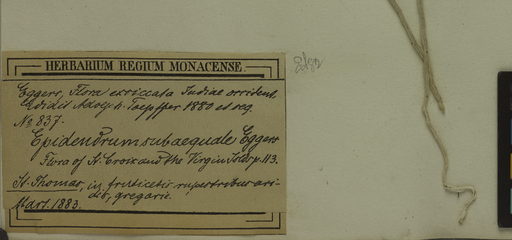 HERBARIUM REGIUM MONACENSE.
Eggers, Flora exsiccata Indiae occident.
Edidit Adolph. Toepffer 1880 et seq.
No 837.
Epidendrum subaequale Eggers
Flora of St. Croix and the Virgin Islds p. 113.
St. Thomas, in fruticetis rupestribus ari-
dis, gregarie.
Mart. 1883.